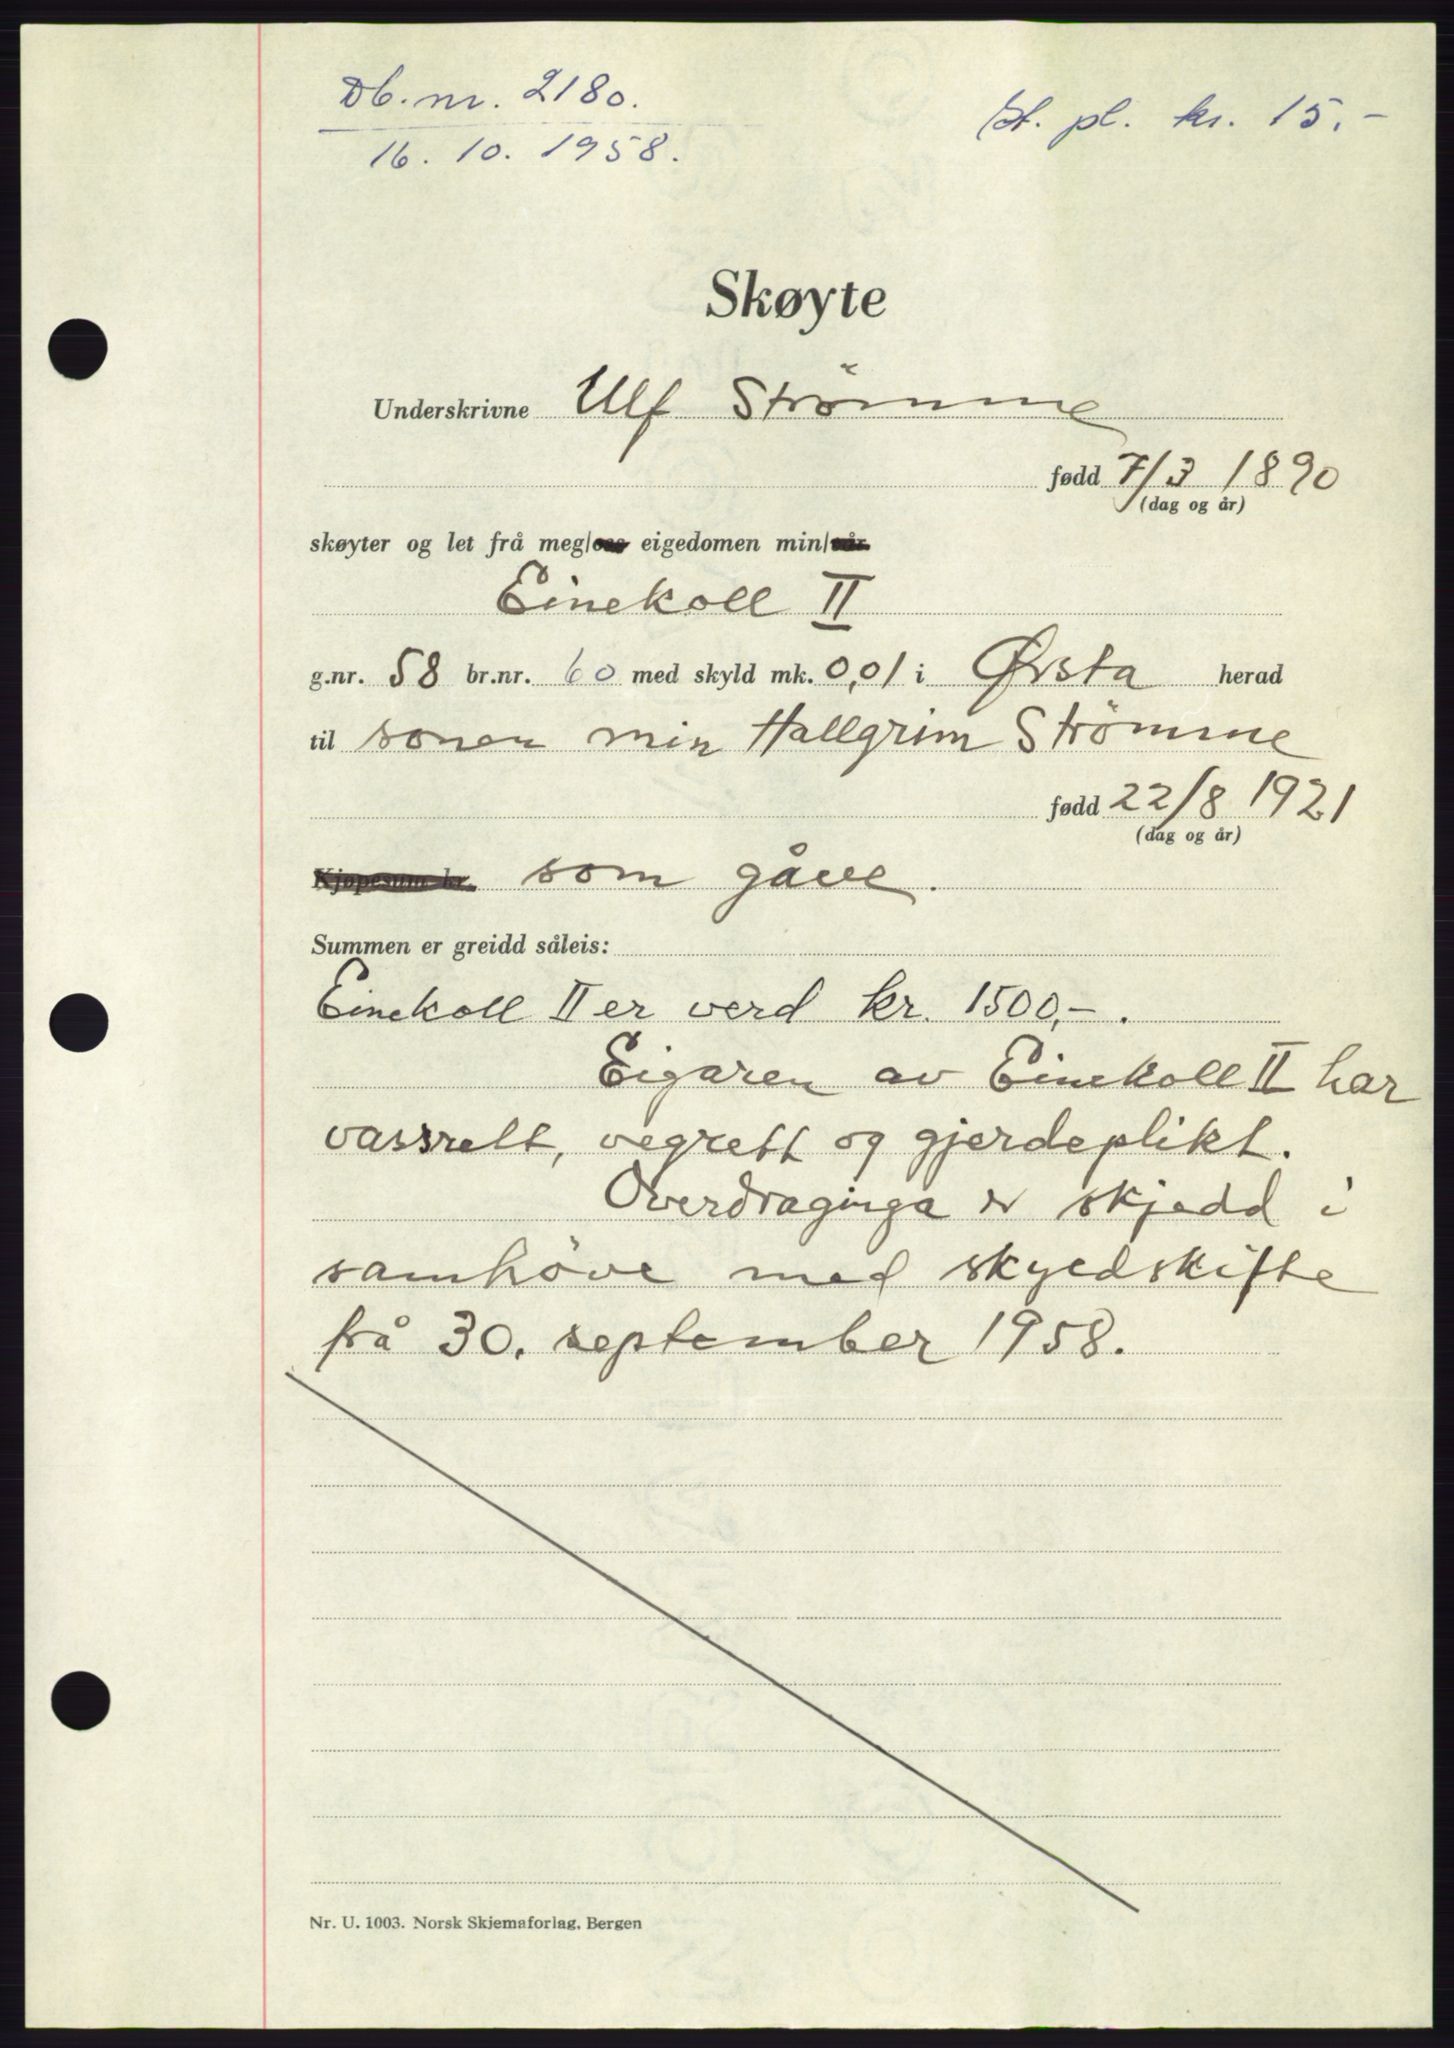 Db. nr. 2180.
16. 10. 1958.
St. pl. kr. 15.-
Skøyte
Underskrivne Ulf Strömme
fødd 7/3 1890
(dag og år)
skøyter og let frå meg/oss eigedomen min/vår
Einekoll II
g.nr. 58 br.nr. 60 med skyld mk. 0,01 i Ørsta herad
til sonen min Hallgrim Strömme
fødd 22/8 1921
(dag og år)
Kjøpesum kr. som gåve.
Summen er greidd såleis:
Einekoll II er verd kr. 1500,-.
Eigaren av Einekoll II har
vassrett, vegrett og gjerdeplikt.
Overdraginga er skjedd i
samhöve med skyldskifte
frå 30. september 1958.
Nr. U. 1003. Norsk Skjemaforlag, Bergen